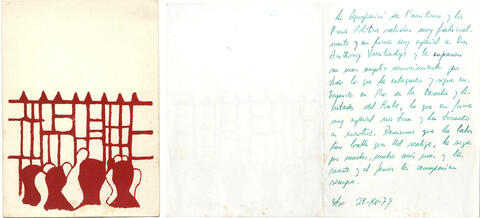 La Agrupación de Familiares y los
Presos Políticos saludan muy fraternal-
mente y en forma muy especial a Don
Anthony y le expresan
su más amplio reconocimiento por
todo lo que ha entregado y sigue en-
tregando en Pro de los Derechos y li-
bertades del Pueblo, lo que en forma
muy especial nos toca y ha tocado
a nosotros. Deseamos que la labor
tan bella que Ud realiza, la siga
por muchos, muchos años más y la
suerte y el amor lo acompañen
siempre.
29-XII-79